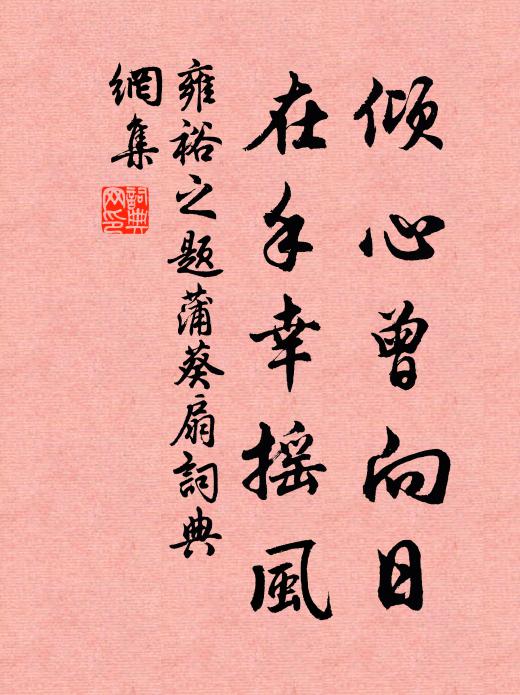 倾心曾向日
在手幸摇風
雍裕之題蒲葵扇詞典
網集
詞典
网印